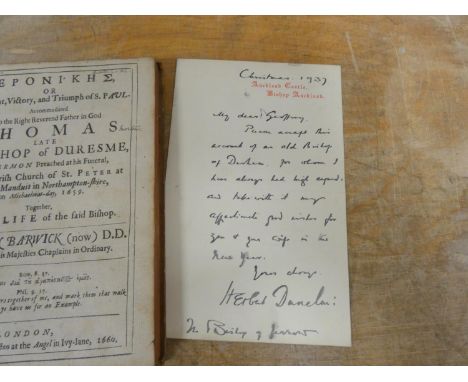 ΕΡΟΝΙΚΗΣ,
OR
Victory, and Triumph of S. PAUL.
Accommodated
the Right Reverend Father in God
HOMAS
LATE
HOP OF DURESME,
ERMON Preached at his Funeral,
rish Church of St. PETER at
Manduit in Northampton-shire,
on Michaelmas-day, 1659.
Together,
LIFE of the said Bishop.
BARWICK (now) D.D.
is Majesties Chaplains in Ordinary.
ROM. 8. 37.
PHIL. 3. 17.
together of me, and mark them that walk
ye have me for an Example.
LONDON,
at the Angel in Ivy-lane, 1660.
Christmas 1937
Auckland Castle,
Bishop Auckland.
My dear Geoffrey,
Please accept this
account of an old Bishop
of Durham, for whom I
have always had high regard,
and take with it my
affectionate good wishes for
you & your wife in the
New Year.
Yours always,
Herbert Dunelm:
The Bishop of Jarrow